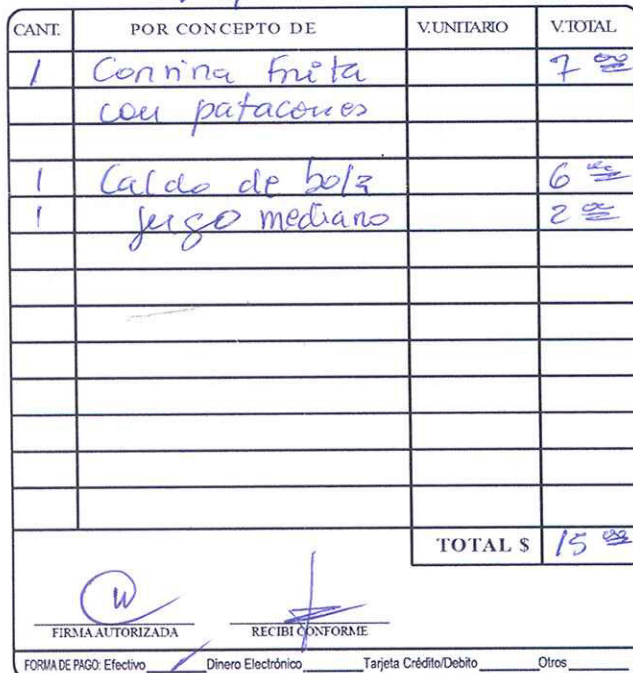 CANT. POR CONCEPTO DE V.UNITARIO V.TOTAL
1 Corvina frita 7 00
con patacones
1 Caldo de bola 6 00
1 jugo mediano 2 00
TOTAL $ 15 00
FIRMA AUTORIZADA RECIBI CONFORME
FORMA DE PAGO: Efectivo Dinero Electrónico Tarjeta Crédito/Debito Otros